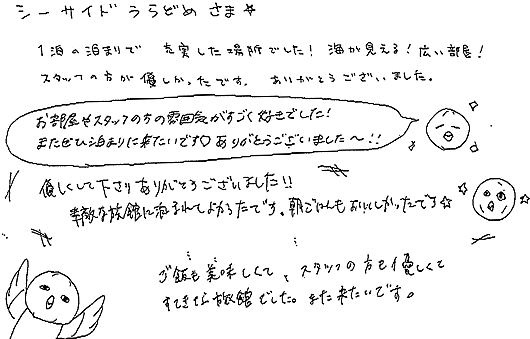 シーサイド うらどめ さま☆
1泊の泊まりで 充実した場所でした! 海が見える! 広い部屋!
スタッフの方が優しかったです。 ありがとうございました。
お部屋やスタッフの方の雰囲気がすごく好きでした!
またぜひ泊まりに来たいです♡ ありがとうございました〜!!
優しくして下さりありがとうございました!!
素敵な旅館に泊まれてよかったです。朝ごはんもおいしかったです☆
ご飯も美味しくて、スタッフの方も優しくて
すてきな旅館でした。また来たいです。